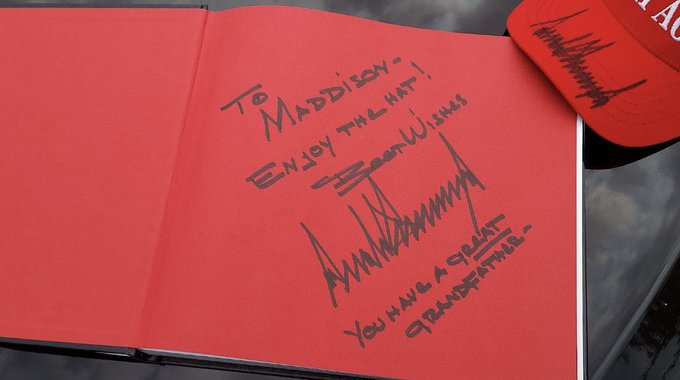 TO
MADDISON-
ENJOY THE HAT!
Best Wishes
YOU HAVE A GREAT
GRANDFATHER-